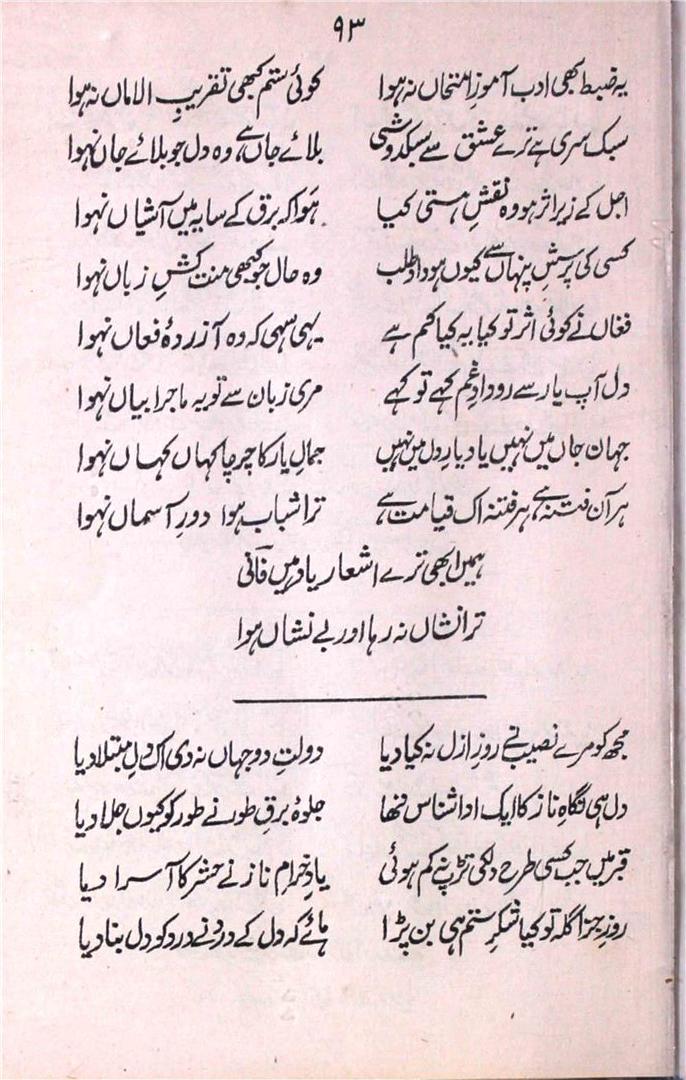 ۹۳
یہ ضبط بھی ادب آموزِ امتحاں نہ ہوا کوئی ستم کبھی تقریبِ الاماں نہ ہوا
سبک سری ہے ترے عشق سے سبکدوشی بلائے جاں ہے وہ دل جو بلائے جاں نہوا
اجل کے زیر اثر ہو وہ نقشِ ہستی کیا ہَوا کہ برق کے سایہ میں آشیاں نہوا
کسی کی پرسشِ پنہاں سے کیوں ہو داد طلب وہ حال جو کبھی منت کشِ زباں نہوا
فغاں نے کوئی اثر تو کیا یہ کیا کم ہے یہی سہی کہ وہ آزردۂ فغاں نہوا
دل آپ یار سے رودادِ غم کہے تو کہے مری زبان سے تو یہ ماجرا بیاں نہوا
جہانِ جاں میں نہیں یا دیارِ دل میں نہیں جمالِ یار کا چرچا کہاں کہاں نہوا
ہر آن فتنہ ہے ہر فتنہ اک قیامت ہے ترا شباب ہوا دورِ آسماں نہوا
ہمیں ابھی ترے اشعار یاد ہیں فانی
ترا نشاں نہ رہا اور بے نشاں نہ ہوا
مجھ کو مرے نصیب نے روزِ ازل نہ کیا دیا دولتِ دو جہاں نہ دی اک دلِ مبتلا دیا
دل ہی نگاہِ ناز کا ایک ادا شناس تھا جلوۂ برقِ طور نے طور کو کیوں جلا دیا
قبر میں جب کسی طرح دل کی تڑپ نہ کم ہوئی یادِ خرامِ ناز نے حشر کا آسرا دیا
روزِ جزا گلہ تو کیا شکرِ ستم ہی بن پڑا ہائے کہ دل کے درد نے درد کو دل بنا دیا